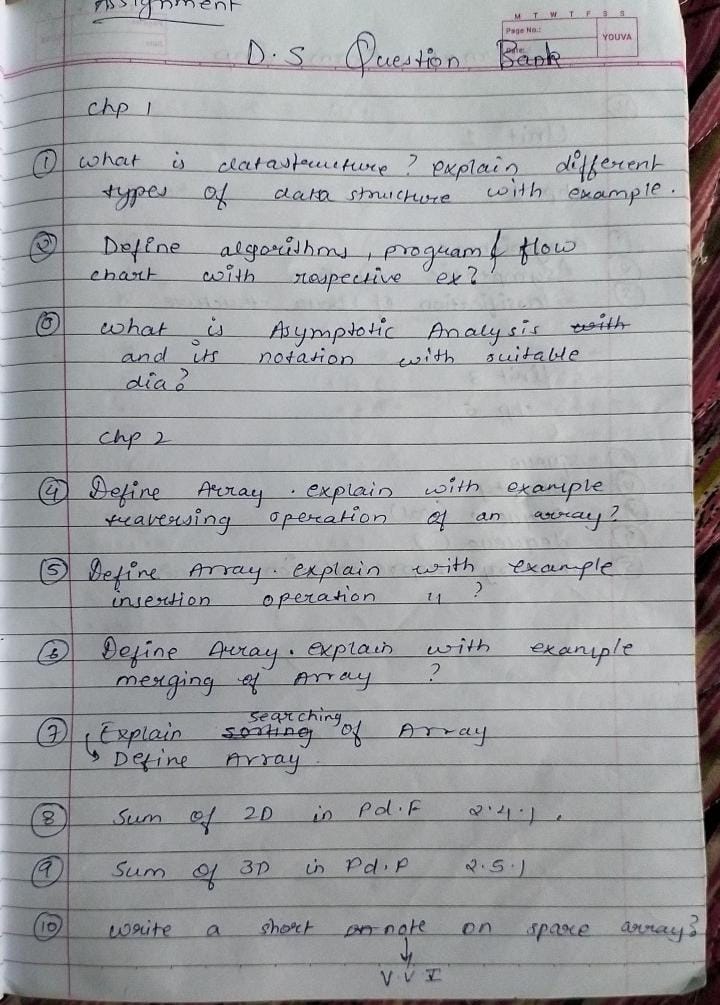 Assignment
M T W T F S S
Page No.:
YOUVA
Date:
D.S Question Bank
Chp 1
① What is datastructure? explain different
types of data structure with example.
② Define algorithms, program & flow
chart with respective ex?
③ What is Asymptotic Analysis with
and its notation with suitable
dia?
Chp 2
④ Define Array. explain with example
traversing operation of an array?
⑤ Define Array. explain with example
insertion operation " ?
⑥ Define Array. explain with example
merging of Array ?
searching
⑦ Explain sorting of Array
↳ Define Array.
⑧ Sum of 2D in Pd.F 2.4.1.
⑨ Sum of 3D in Pd.P 2.5.1
⑩ Write a short note on spare array?
↓
V.V I